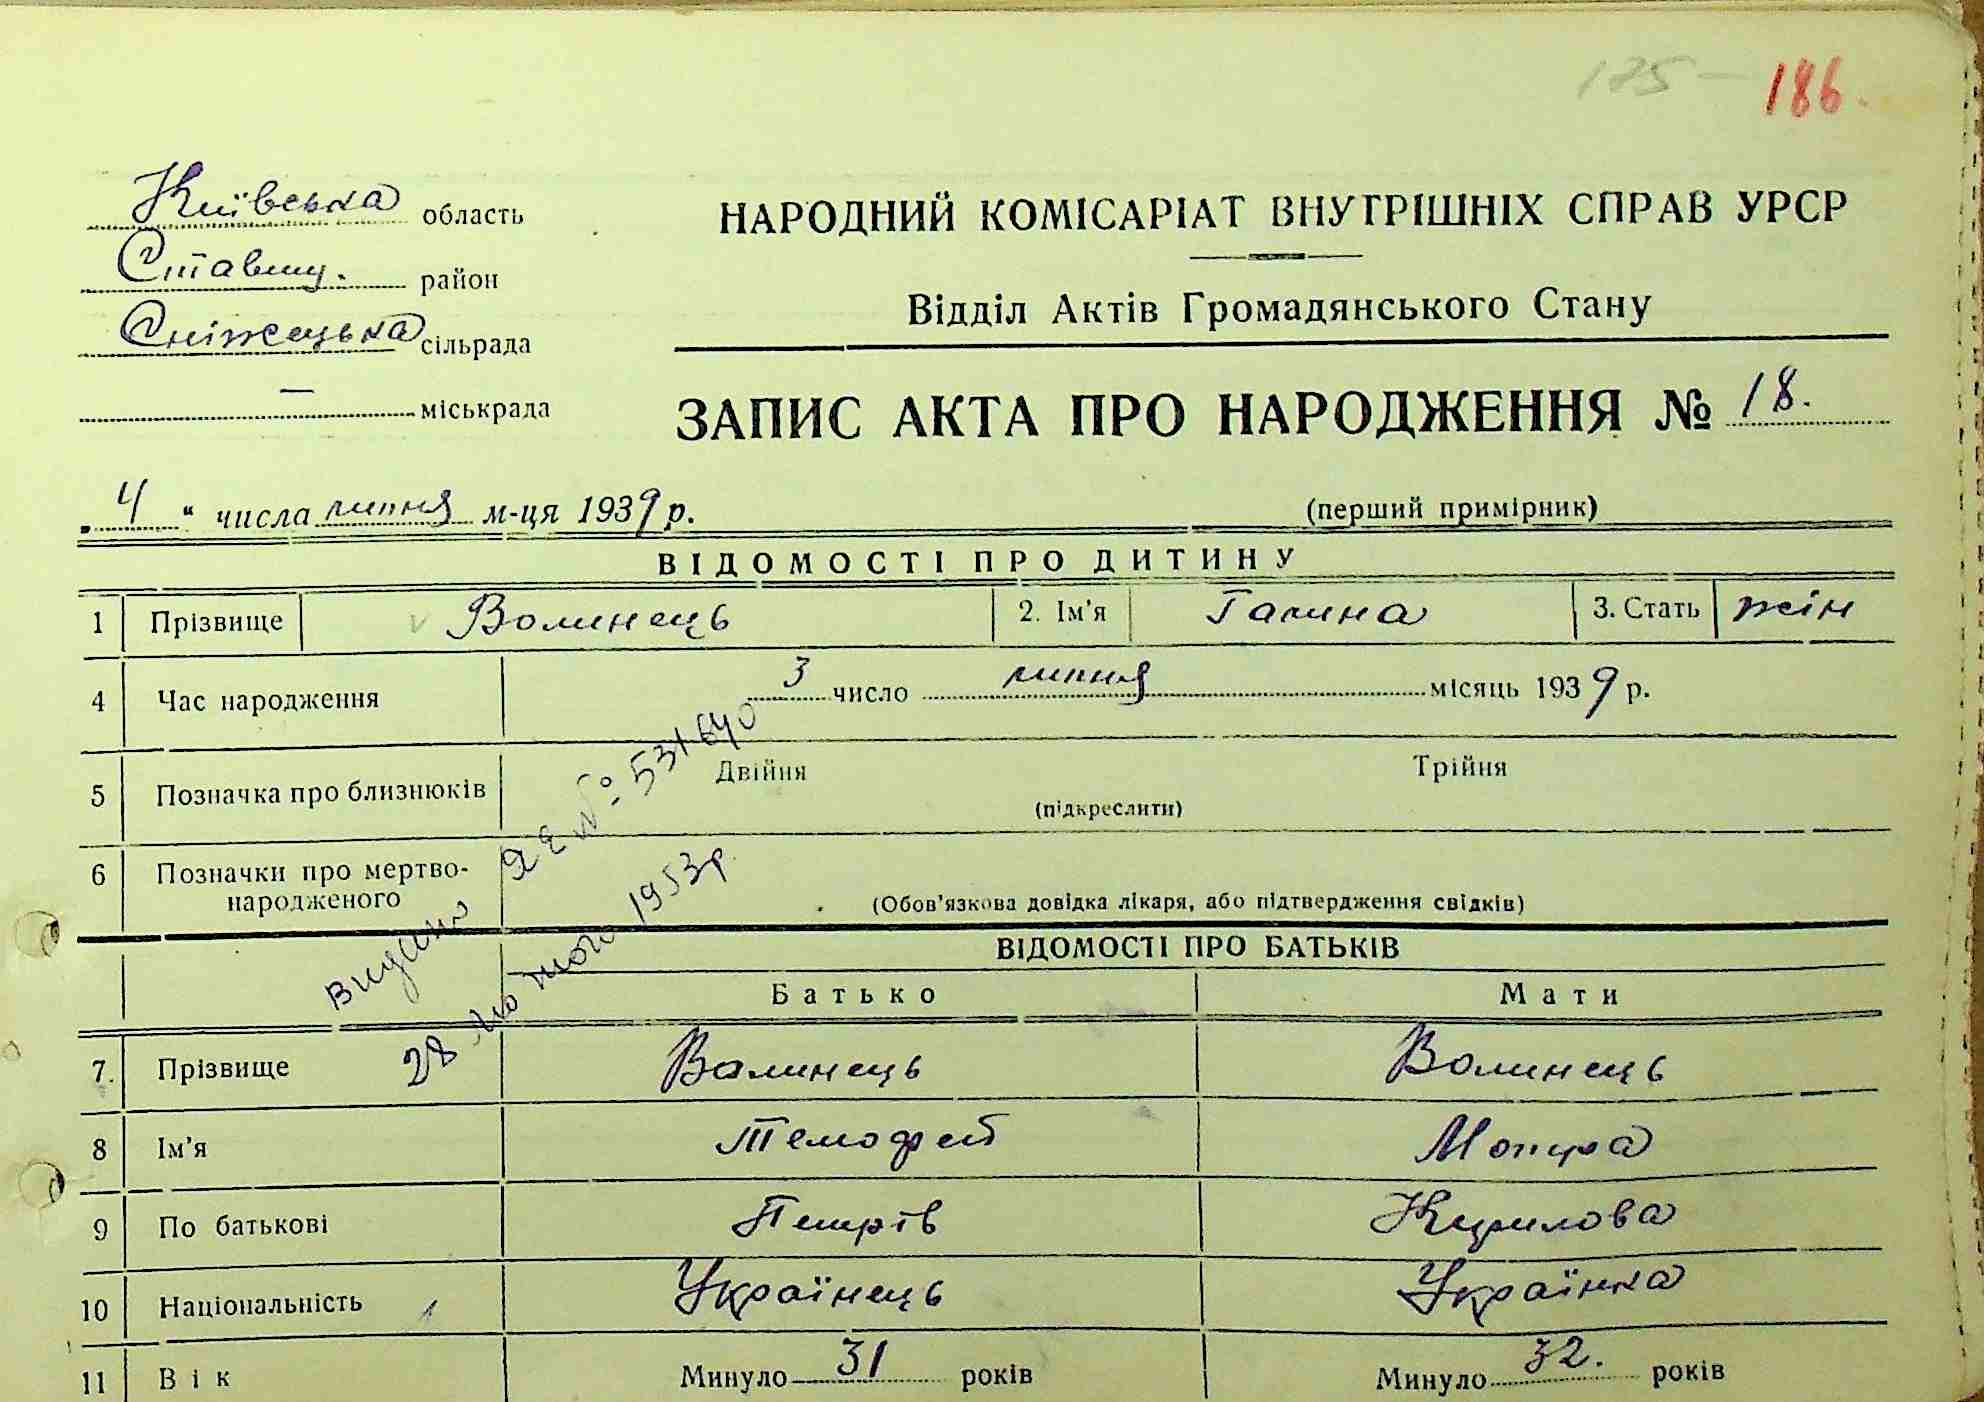 175 — 186.
Київська область
Ставищ. район
Сніжецька сільрада
— міськрада
НАРОДНИЙ КОМІСАРІАТ ВНУТРІШНІХ СПРАВ УРСР
Відділ Актів Громадянського Стану
ЗАПИС АКТА ПРО НАРОДЖЕННЯ № 18.
„ 4 “ числа липня м-ця 1939 р.
(перший примірник)
ВІДОМОСТІ ПРО ДИТИНУ
1 Прізвище Волинець 2. Ім'я Галина 3. Стать жін
4 Час народження 3 число липня місяць 1939 р.
5 Позначка про близнюків Двійня Трійня
(підкреслити)
6 Позначки про мертво-
народженого
(Обов'язкова довідка лікаря, або підтвердження свідків)
видано ЯЕ № 531640
28 лютого 1953р.
ВІДОМОСТІ ПРО БАТЬКІВ
Батько Мати
7. Прізвище Валинець Волинець
8 Ім'я Темофей
9 По батькові Петрів Курилова
10 Національність Українець Українка
11 Вік Минуло 31 років Минуло 32. років